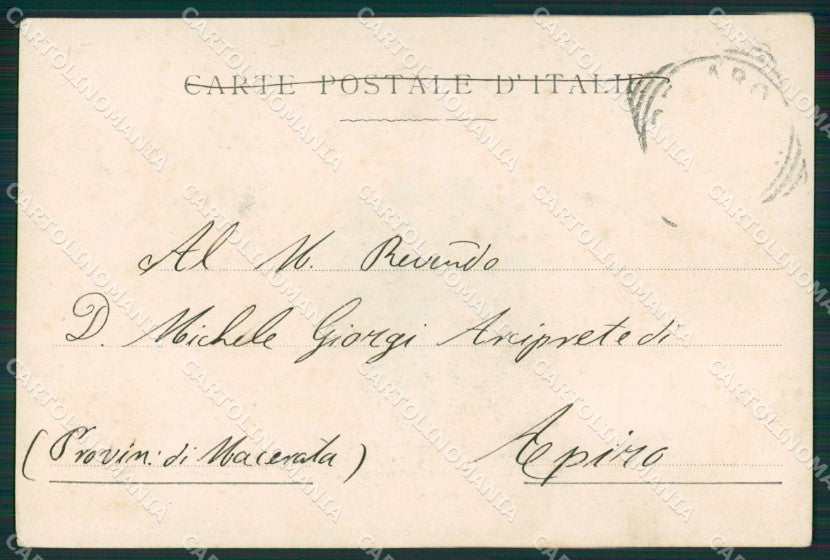 CARTE POSTALE D'ITALIE
ARO
Al M. Revendo
D. Michele Giorgi Arciprete di
(Provin: di Macerata) Apiro
CARTOLINOMANIA